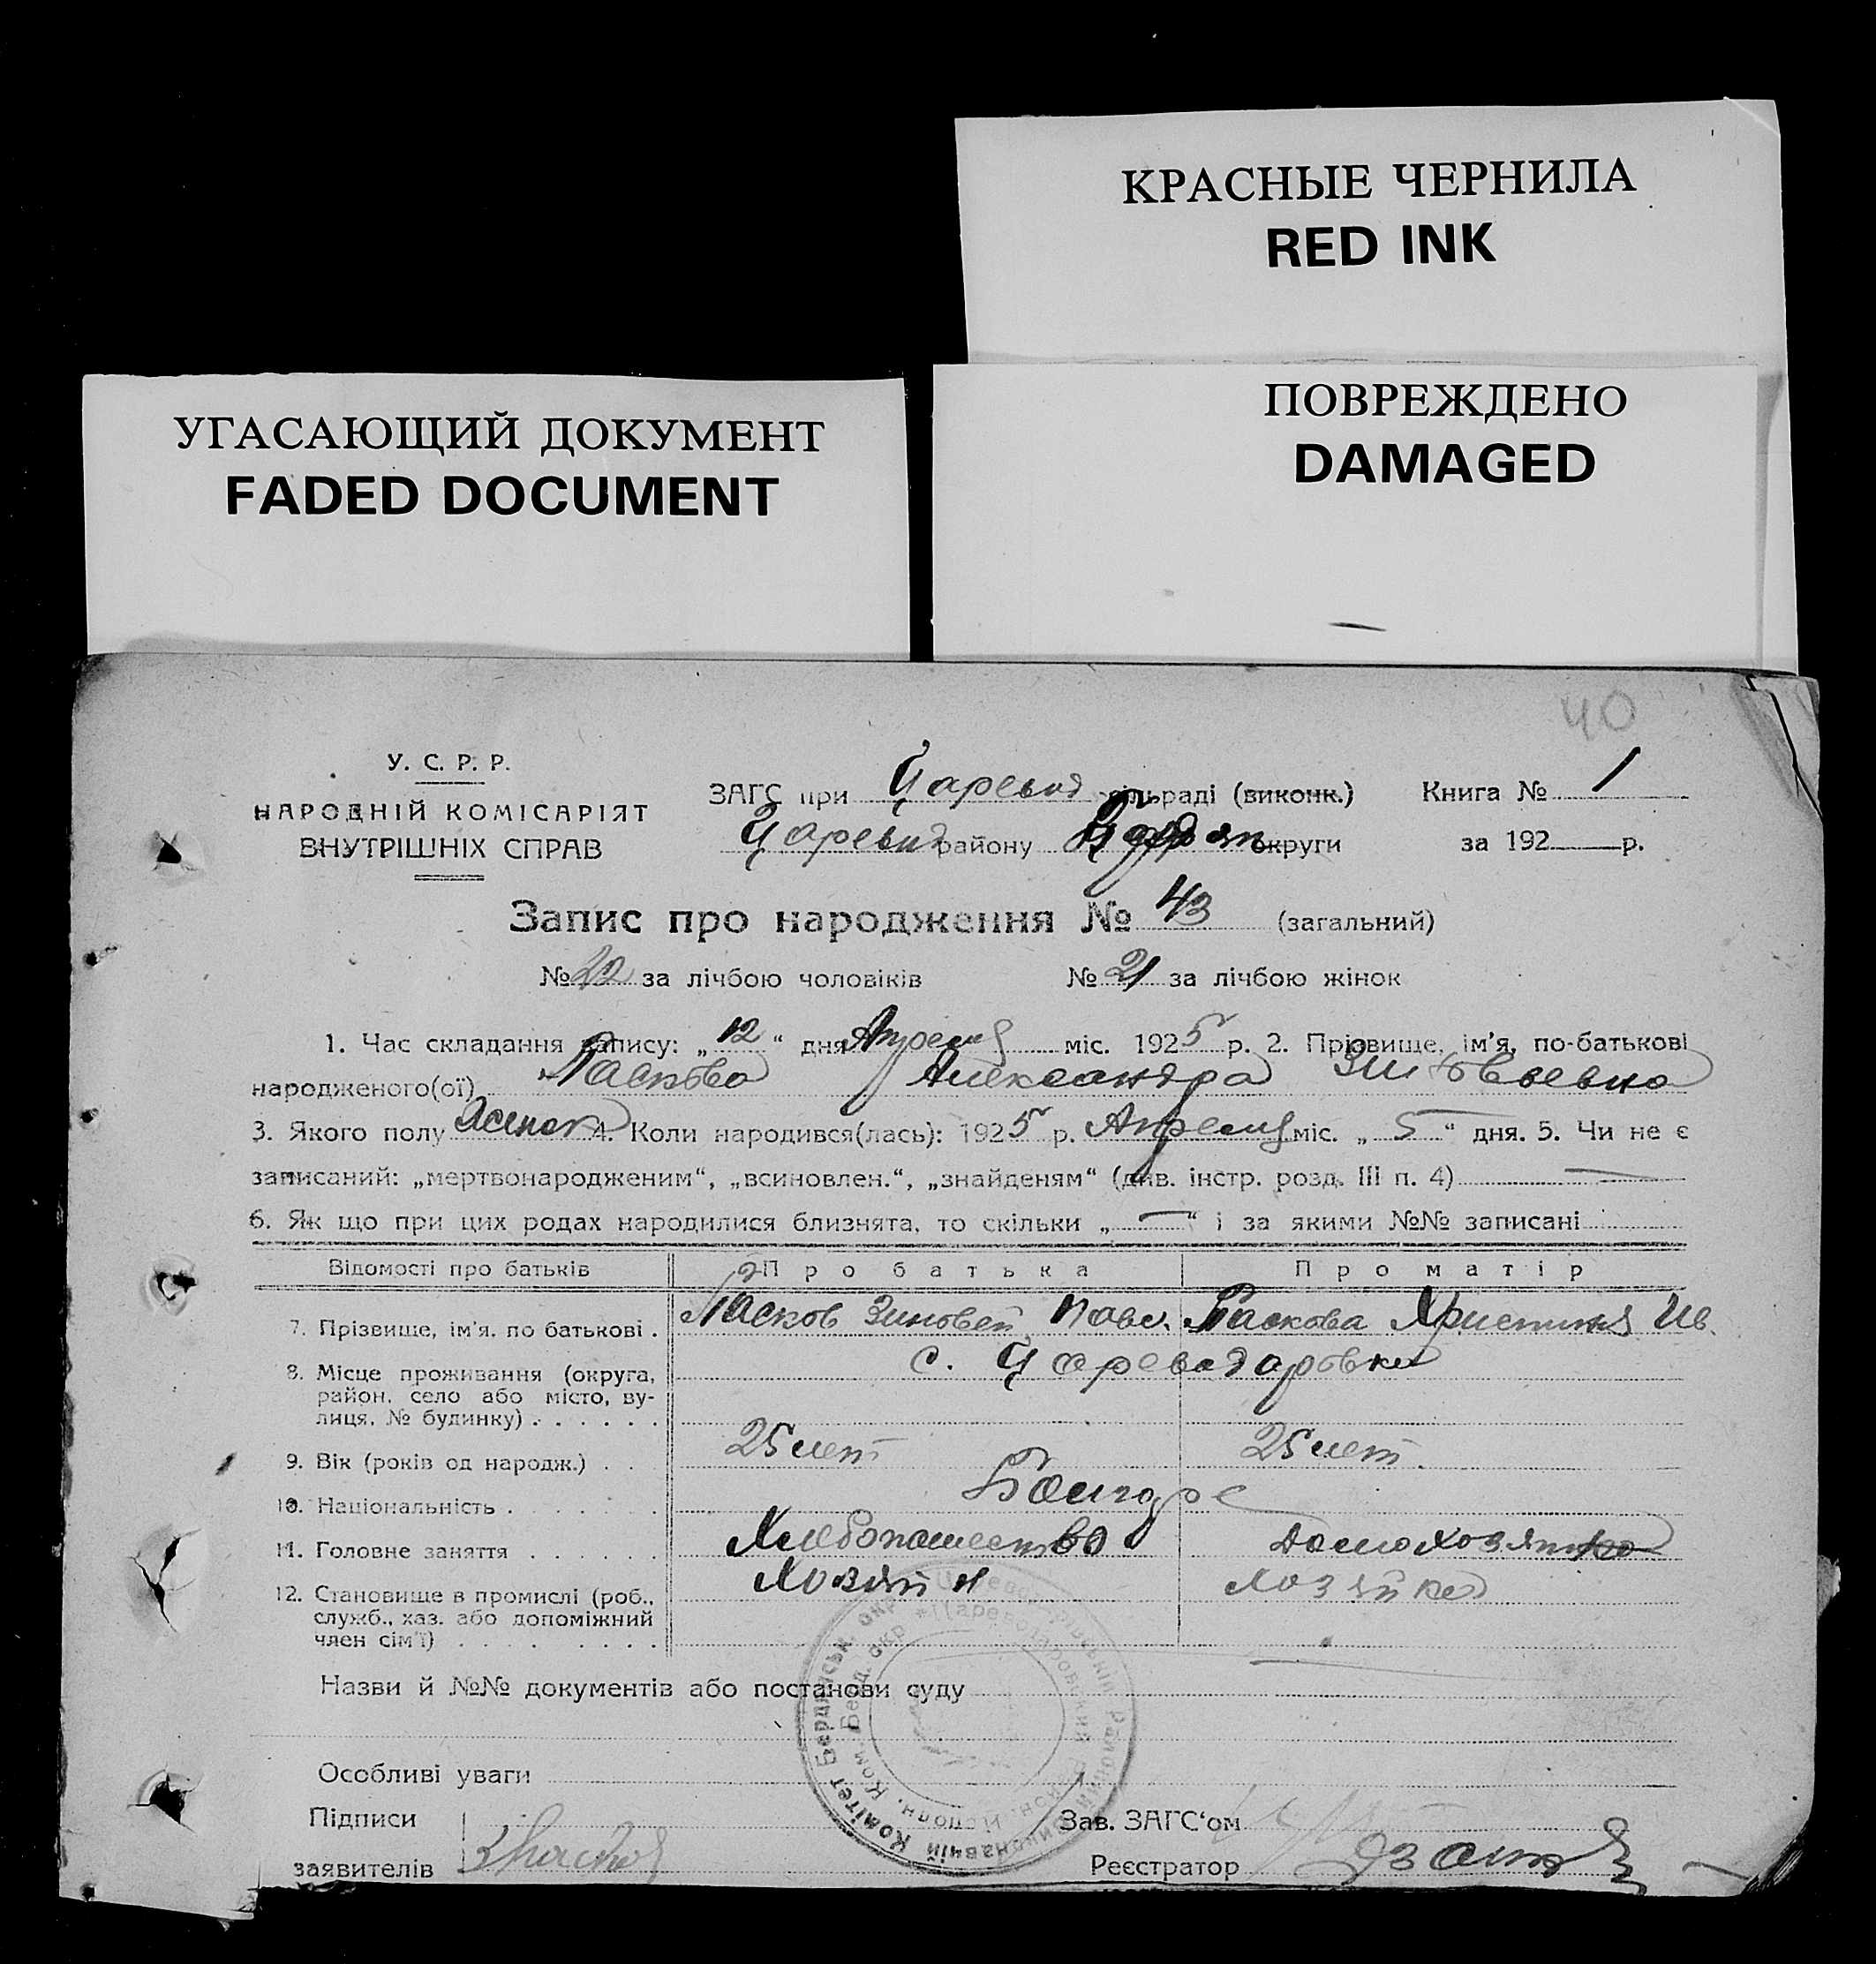 КРАСНЫЕ ЧЕРНИЛА
RED INK
УГАСАЮЩИЙ ДОКУМЕНТ
FADED DOCUMENT
ПОВРЕЖДЕНО
DAMAGED
40
У. С. Р. Р.
НАРОДНІЙ КОМІСАРІЯТ
ВНУТРІШНІХ СПРАВ
ЗАГС при Царевод сільраді (виконк.) Книга № 1
Царевод району округи за 192 р.
Запис про народження № 43 (загальний)
№ 22 за лічбою чоловіків № 21 за лічбою жінок
1. Час складання запису: „12“ дня Апреля міс. 1925 р. 2. Прізвище, ім'я, по-батькові
народженого(ої) Паскова Александра Зиновьевна
3. Якого полу женск 4. Коли народився(лась): 1925 р. Апреля міс. „5“ дня. 5. Чи не є
записаний: „мертвонародженим“, „всиновлен.“, „знайденям“ (див. інстр. розд. III п. 4) —
6. Як що при цих родах народилися близнята, то скільки „—“ і за якими №№ записані
Відомості про батьків Про батька Про матір
7. Прізвище, ім'я, по батькові . Пасков Зиновей Павл. Паскова Христиня Ив.
8. Місце проживання (округа, с. Цареводаровка
район, село або місто, ву-
лиця, № будинку) . . . . . .
9. Вік (років од народж.) . . 25 лет 25 лет.
10. Національність . . . . . Болгаре
11. Головне заняття . . . . . . Хлебопашество Домохозяйка
12. Становище в промислі (роб., Хозяин Хозяйка
служб., хаз. або допоміжний
член сім'ї) . . . . . . . .
Назви й №№ документів або постанови суду
Особливі уваги
Підписи Зав. ЗАГС‘ом
заявителів Реєстратор